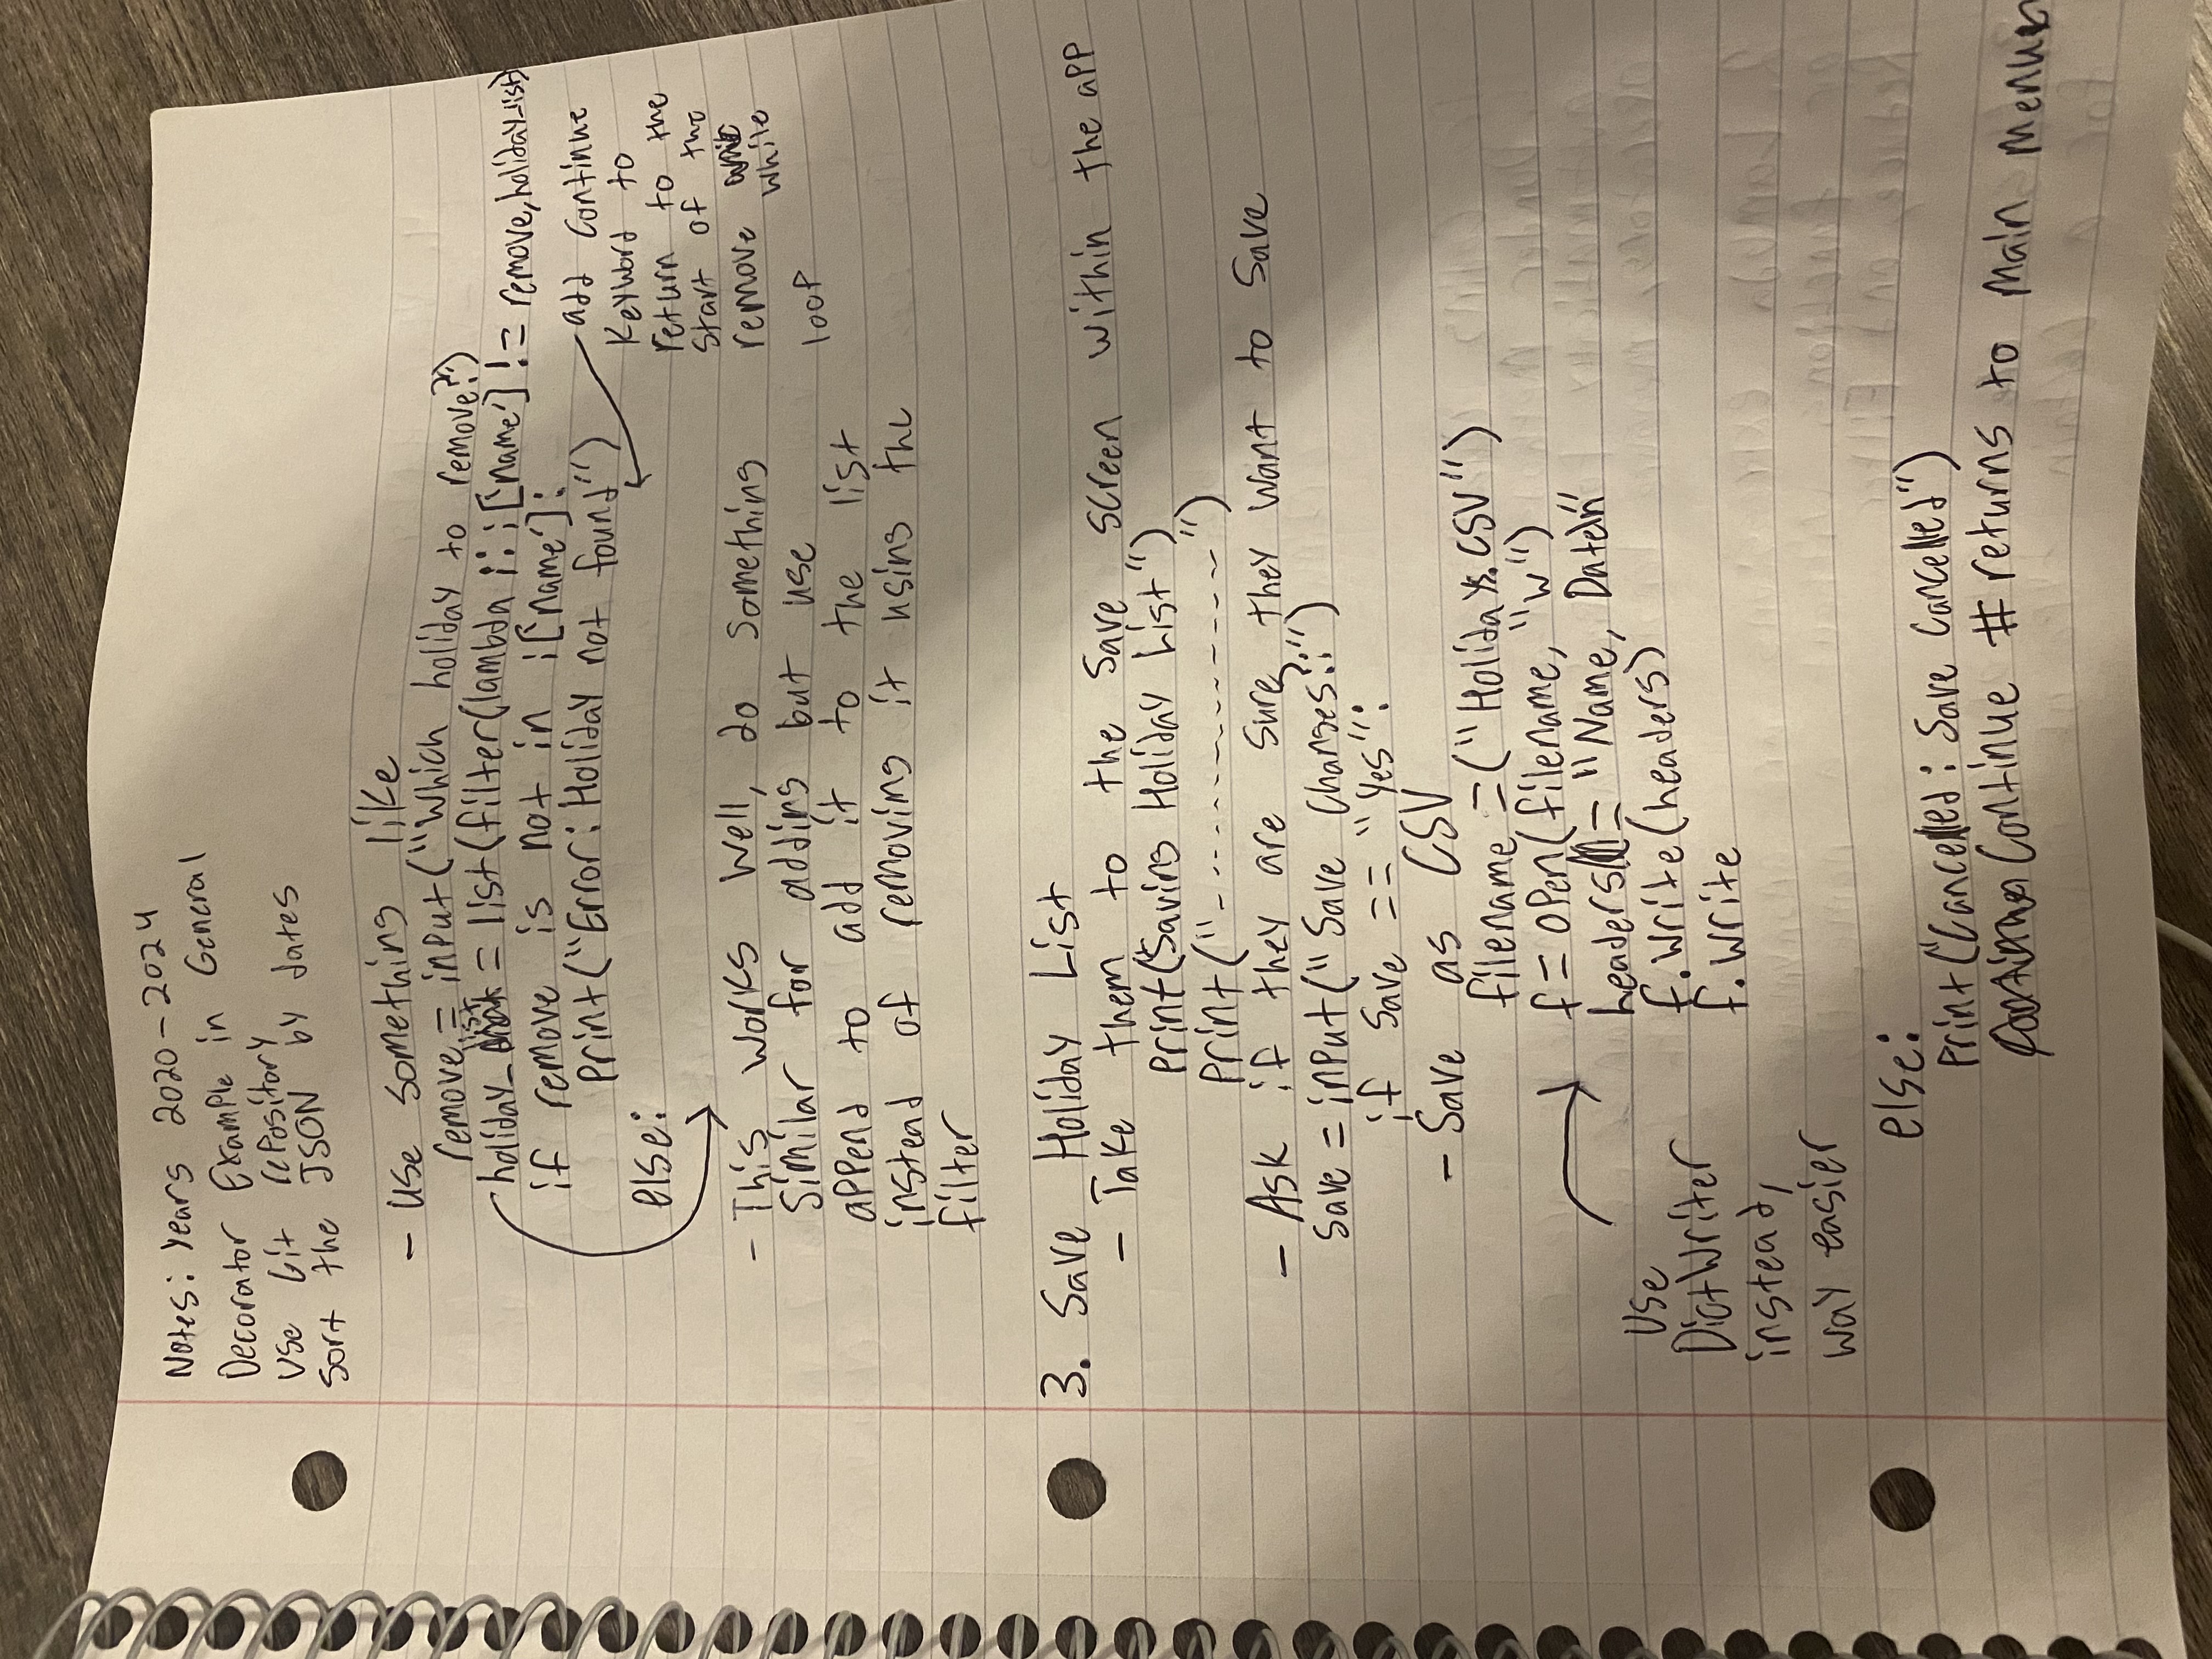 Notes: Years 2020-2024
Decorator Example in General
Use Git repository
Sort the JSON by dates
- Use something like
remove = input("Which holiday to remove?")
holiday_list = list(filter(lambda i: i['name'] != remove, holiday_list)
if remove is not in i['name']:
print("Error: Holiday not found")
add continue
keyword to
return to the
start of the
remove
while
loop
else:
- This works well, do something
similar for adding but use
append to add it to the list
instead of removing it using the
filter
3. Save Holiday List
- Take them to the save screen within the app
print("Saving Holiday List")
print("--------------")
- Ask if they are sure they want to save
save = input("Save Changes?:")
if save == "Yes":
- Save as CSV
filename = ("Holidays.CSV")
f = open(filename, "w")
headers = "Name, Date\n"
f.write(headers)
f.write
Use
DictWriter
instead,
way easier
else:
print("Cancelled: Save Cancelled")
Continue # returns to main menu